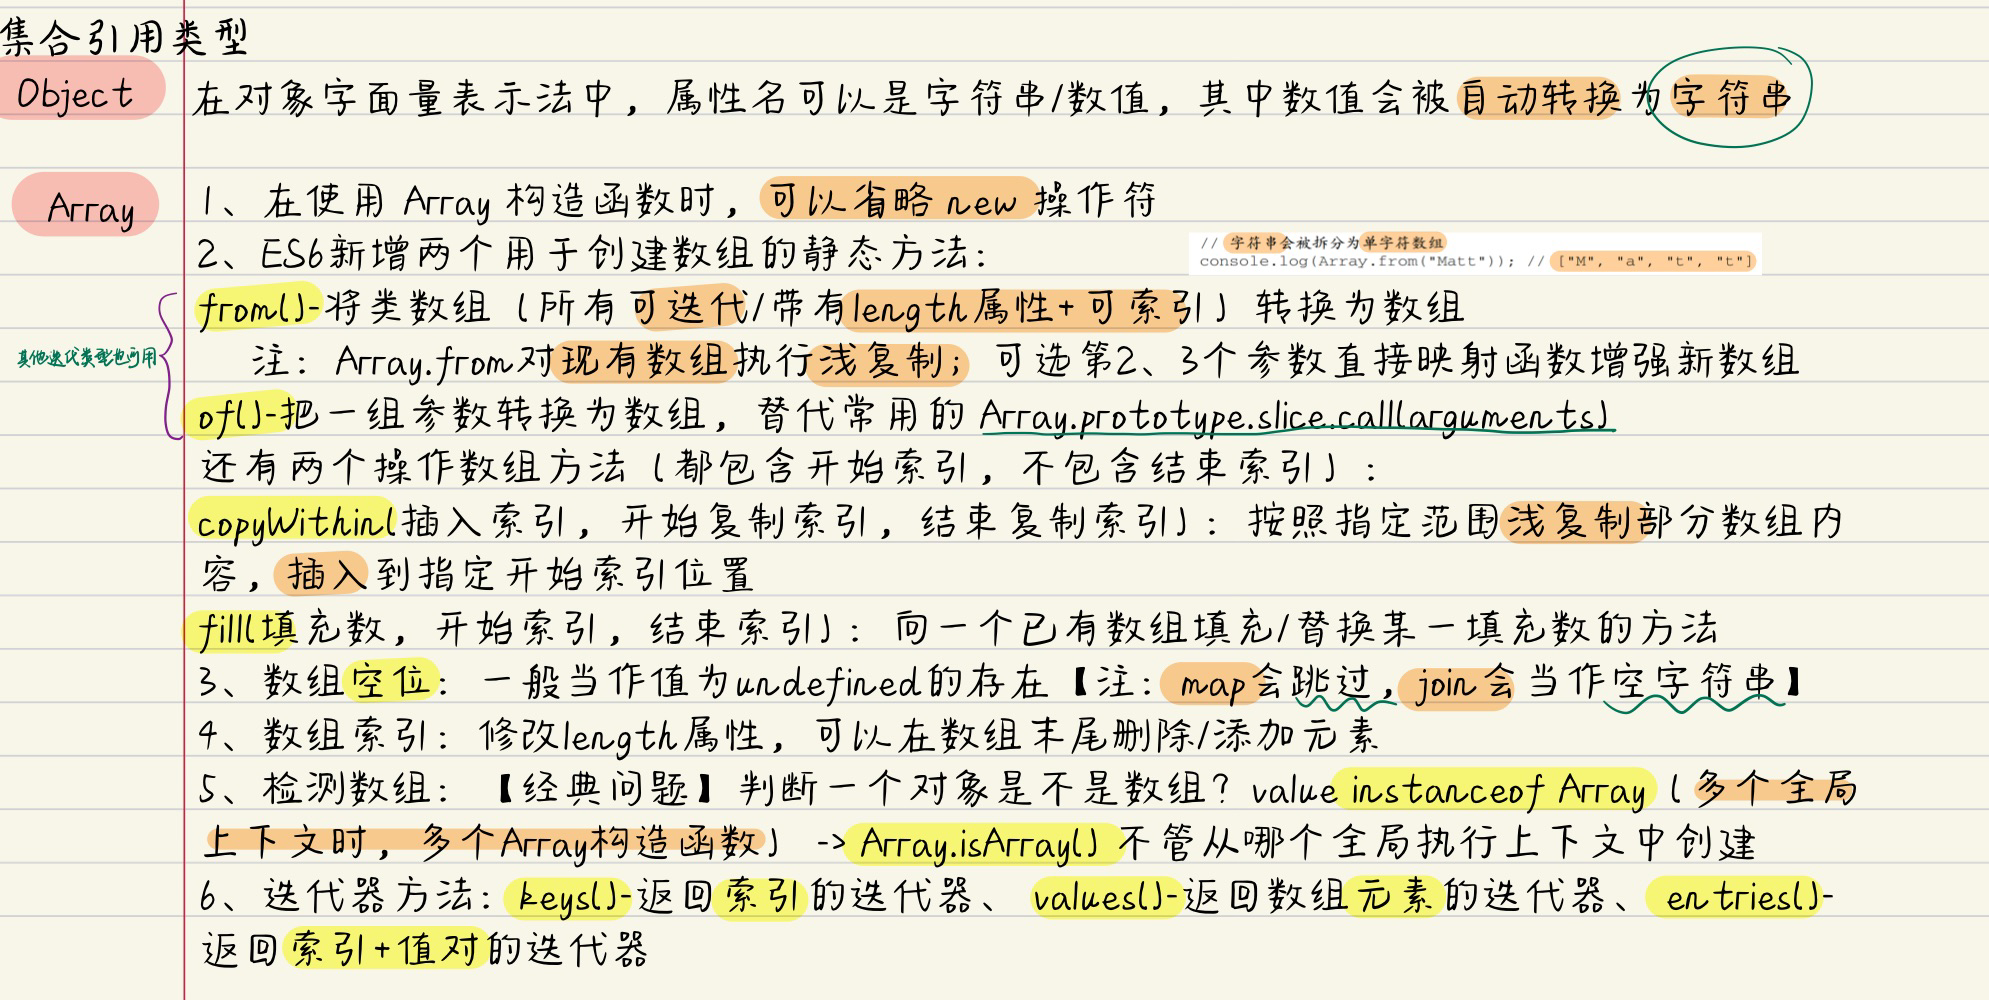 集合引用类型
Object
在对象字面量表示法中，属性名可以是字符串/数值，其中数值会被自动转换为字符串
Array
1、在使用 Array 构造函数时，可以省略 new 操作符
2、ES6新增两个用于创建数组的静态方法：
// 字符串会被拆分为单字符数组
console.log(Array.from("Matt")); // ["M", "a", "t", "t"]
from()-将类数组（所有可迭代/带有length属性+可索引）转换为数组
其他迭代类型也可用
注：Array.from对现有数组执行浅复制；可选第2、3个参数直接映射函数增强新数组
of()-把一组参数转换为数组，替代常用的 Array.prototype.slice.call(arguments)
还有两个操作数组方法（都包含开始索引，不包含结束索引）：
copyWithin(插入索引，开始复制索引，结束复制索引)：按照指定范围浅复制部分数组内
容，插入到指定开始索引位置
fill(填充数，开始索引，结束索引)：向一个已有数组填充/替换某一填充数的方法
3、数组空位：一般当作值为undefined的存在【注：map会跳过，join会当作空字符串】
4、数组索引：修改length属性，可以在数组末尾删除/添加元素
5、检测数组：【经典问题】判断一个对象是不是数组？value instanceof Array（多个全局
上下文时，多个Array构造函数）-> Array.isArray() 不管从哪个全局执行上下文中创建
6、迭代器方法：keys()-返回索引的迭代器、values()-返回数组元素的迭代器、entries()-
返回索引+值对的迭代器